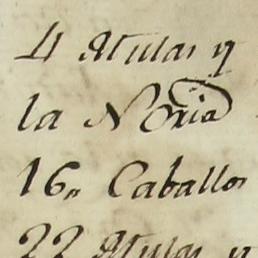 4 Mulas y
la Noria
16„ Caballos
22 Mulas y